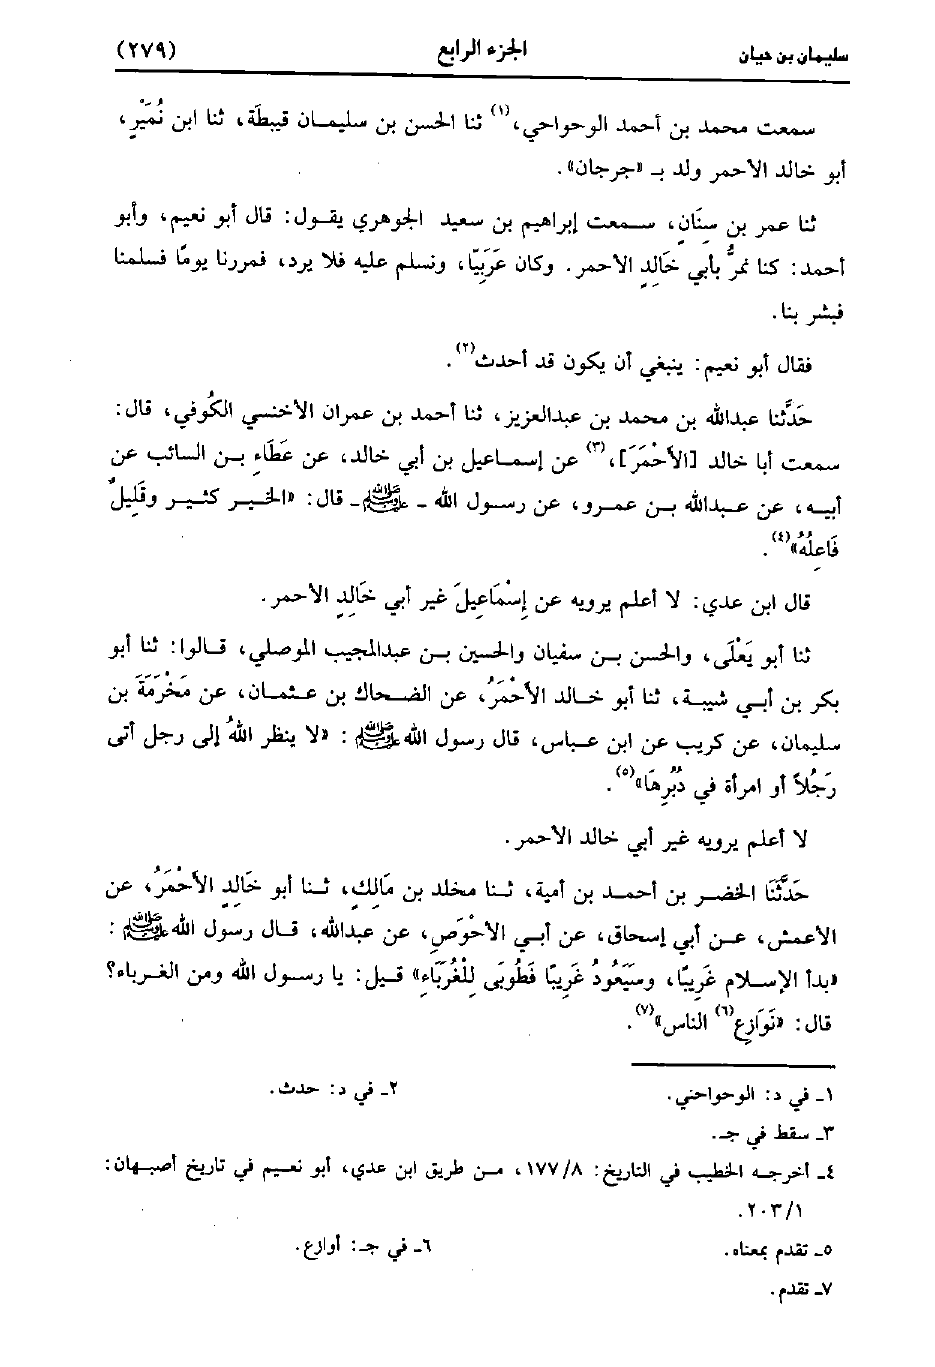 سليمان بن حيان الجزء الرابع (٢٧٩)
سمعت محمد بن أحمد الوحواحي،(١) ثنا الحسن بن سليمان قبيطة، ثنا ابن نُمَيْرٍ،
أبو خالد الأحمر ولد بـ «جرجان».
ثنا عمر بن سِنَانٍ، سمعت إبراهيم بن سعيد الجوهري يقول: قال أبو نعيم، وأبو
أحمد: كنا نمرُّ بأبي خَالِدٍ الأحمر. وكان عَرَبيًا، ونسلم عليه فلا يرد، فمررنا يومًا فسلمنا
فبشر بنا.
فقال أبو نعيم: ينبغي أن يكون قد أحدث(٢).
حَدَّثنا عبدالله بن محمد بن عبدالعزيز، ثنا أحمد بن عمران الأخنسي الكُوفي، قال:
سمعت أبا خالد [الأحْمَرَ]،(٣) عن إسماعيل بن أبي خالد، عن عَطَاءِ بن السائب عن
أبيه، عن عبدالله بن عمرو، عن رسول الله ـ ﷺ ـ قال: «الخير كثير وقَلِيلٌ
فَاعِلُهُ»(٤).
قال ابن عدي: لا أعلم يرويه عن إسْمَاعِيلَ غير أبي خَالِدٍ الأحمر.
ثنا أبو يَعْلَى، والحسن بن سفيان والحسين بن عبدالمجيب الموصلي، قالوا: ثنا أبو
بكر بن أبي شيبة، ثنا أبو خالد الأحْمَرُ، عن الضحاك بن عثمان، عن مَخْرَمَةَ بن
سليمان، عن كريب عن ابن عباس، قال رسول الله ﷺ : «لا ينظر اللهُ إلى رجل أتى
رَجُلاً أو امرأة في دُبُرِهَا»(٥).
لا أعلم يرويه غير أبي خالد الأحمر.
حَدَّثَنَا الخضر بن أحمد بن أمية، ثنا مخلد بن مَالِكٍ، ثنا أبو خَالِدٍ الأحْمَرُ، عن
الأعمش، عن أبي إسحاق، عن أبي الأحْوَصِ، عن عبدالله، قال رسول الله ﷺ :
«بدأ الإسلام غَرِيبًا، وسَيَعُودُ غَرِيبًا فَطُوبَى لِلْغُرَبَاءِ» قيل: يا رسول الله ومن الغرباء؟
قال: «نَوَازِع(٦) الناس»(٧).
١ـ في د: الوحواحني. ٢ـ في د: حدث.
٣ـ سقط في جـ.
٤ـ أخرجه الخطيب في التاريخ: ١٧٧/٨، من طريق ابن عدي، أبو نعيم في تاريخ أصبهان:
٢٠٣/١.
٥ـ تقدم بمعناه. ٦ـ في جـ: أوازع.
٧ـ تقدم.